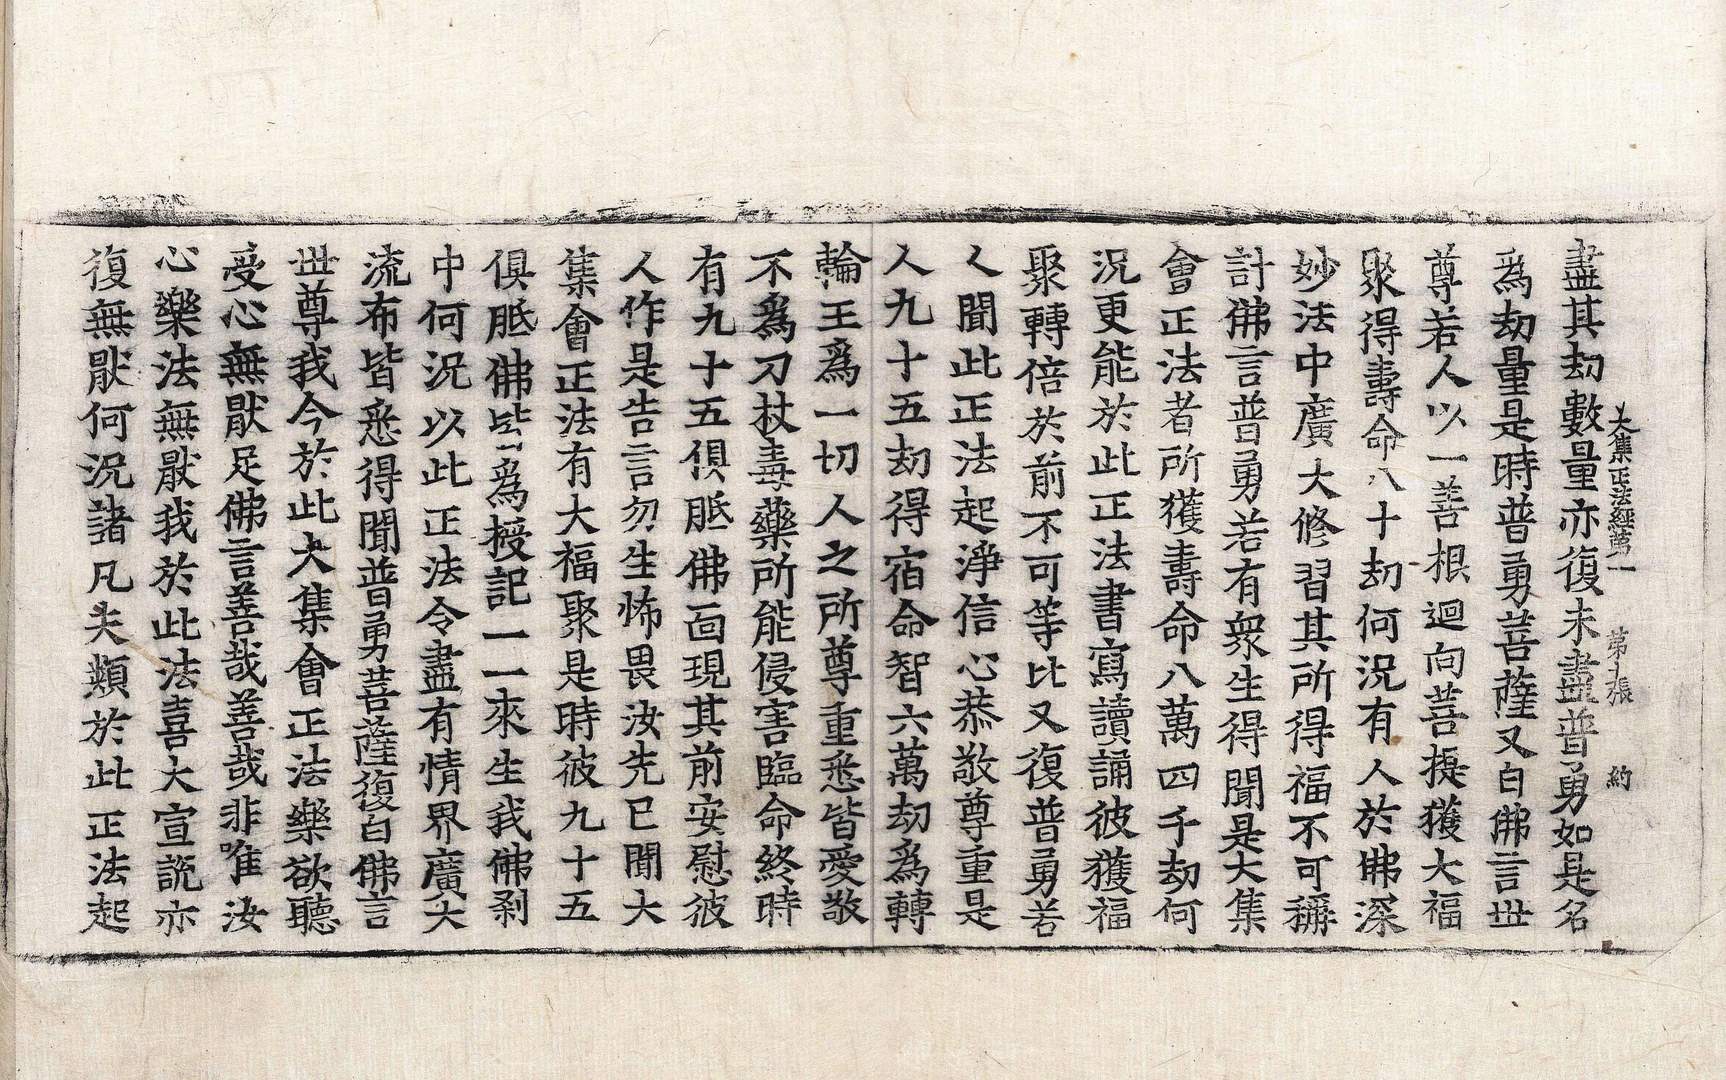 大集正法經第一　第九張　約
盡其劫數量亦復未盡普勇如是名
爲劫量是時普勇菩薩又白佛言世
尊若人以一善根迴向菩提獲大福
聚得壽命八十劫何況有人於佛深
妙法中廣大修習其所得福不可稱
計佛言普勇若有衆生得聞是大集
會正法者所獲壽命八萬四千劫何
況更能於此正法書寫讀誦彼獲福
聚轉倍於前不可等比又復普勇若
人聞此正法起淨信心恭敬尊重是
人九十五劫得宿命智六萬劫爲轉
輪王爲一切人之所尊重悉皆愛敬
不爲刀杖毒藥所能侵害臨命終時
有九十五俱胝佛面現其前安慰彼
人作是告言勿生怖畏汝先已聞大
集會正法有大福聚是時彼九十五
俱胝佛皆爲授記一一來生我佛刹
中何況以此正法令盡有情界廣大
流布皆悉得聞普勇菩薩復白佛言
世尊我今於此大集會正法樂欲聽
受心無猒足佛言善哉善哉非唯汝
心樂法無猒我於此法喜大宣說亦
復無猒何況諸凡夫類於此正法起